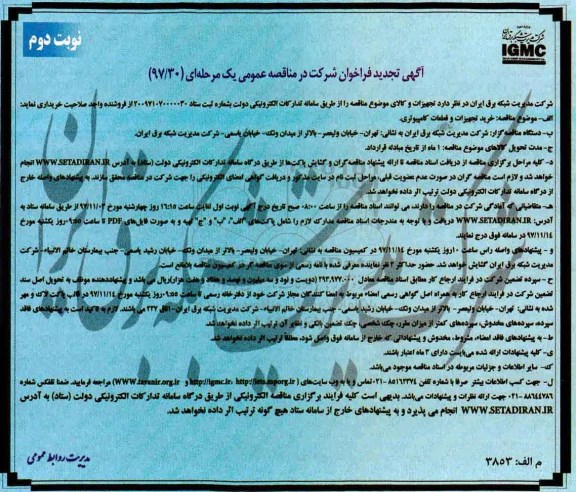 نوبت دوم
شرکت مدیریت شبکه برق ایران
IGMC
آگهی تجدید فراخوان شرکت در مناقصه عمومی یک مرحله‌ای (۹۷/۳۰)
شرکت مدیریت شبکه برق ایران در نظر دارد تجهیزات و کالای موضوع مناقصه را از طریق سامانه تدارکات الکترونیکی دولت بشماره ثبت ستاد ۲۰۰۹۷۱۰۷۰۰۰۰۰۳۰ از فروشنده واجد صلاحیت خریداری نماید:
الف- موضوع مناقصه: خرید تجهیزات و قطعات کامپیوتری.
ب- دستگاه مناقصه گزار: شرکت مدیریت شبکه برق ایران به نشانی: تهران- خیابان ولیعصر- بالاتر از میدان ونک- خیابان یاسمی- شرکت مدیریت شبکه برق ایران.
ج- مدت تحویل کالاهای موضوع مناقصه: ۱ ماه از تاریخ مبادله قرارداد.
د- کلیه مراحل برگزاری مناقصه از دریافت اسناد مناقصه تا ارائه پیشنهاد مناقصه گران و گشایش پاکت‌ها از طریق درگاه سامانه تدارکات الکترونیکی دولت (ستاد) به آدرس WWW.SETADIRAN.IR انجام
خواهد شد و لازم است مناقصه گران در صورت عدم عضویت قبلی، مراحل ثبت نام در سایت مذکور و دریافت گواهی امضای الکترونیکی را جهت شرکت در مناقصه محقق سازند. به پیشنهادهای واصله خارج
از درگاه سامانه تدارکات الکترونیکی دولت ترتیب اثر داده نخواهد شد.
ه- متقاضیانی که آمادگی شرکت در مناقصه را دارند، می توانند اسناد مناقصه را از ساعت ۰۸:۰۰ صبح تاریخ درج آگهی نوبت اول لغایت ساعت ۱۶:۱۵ روز چهارشنبه مورخ ۹۷/۱۱/۰۳ از طریق سامانه ستاد به
آدرس: WWW.SETADIRAN.IR دریافت و با توجه به مندرجات اسناد مناقصه مدارک لازم را شامل پاکت‌های "الف"، "ب" و "ج" تهیه و به صورت فایل‌های PDF تا ساعت ۰۹:۵۵ روز یکشنبه مورخ
۹۷/۱۱/۱۴ در سامانه فوق درج نمایند.
و- پیشنهادهای واصله راس ساعت ۱۰ روز یکشنبه مورخ ۹۷/۱۱/۱۴ در کمیسیون مناقصه به نشانی: تهران- خیابان ولیعصر- بالاتر از میدان ونک- خیابان رشید یاسمی- جنب بیمارستان خاتم الانبیاء- شرکت
مدیریت شبکه برق ایران گشایش خواهد شد. حضور حداکثر ۲ نفر نماینده معرفی شده با نامه رسمی از سوی مناقصه گر در کمیسیون مناقصه بلامانع است.
ح- سپرده تضمین شرکت در فرایند ارجاع کار مطابق اسناد مناقصه معادل
تضمین شرکت در فرایند ارجاع کار به همراه اصل گواهی رسمی امضاء مربوط به امضا کنندگان مجاز شرکت خود از دفترخانه رسمی تا ساعت ۰۹:۵۵ روز یکشنبه مورخ ۹۷/۱۱/۱۴ در قالب پاکت لاک و مهر
شده به نشانی: تهران- خیابان ولیعصر- بالاتر از میدان ونک- خیابان رشید یاسمی- جنب بیمارستان خاتم الانبیاء- شرکت مدیریت شبکه برق ایران- اتاق ۲۳۷ می باشند. لازم به تاکید است به پیشنهادهای فاقد
سپرده، سپرده‌های مخدوش، سپرده‌های کمتر از میزان مقرر، چک شخصی، چک تضمین بانکی و نظایر آن ترتیب اثر داده نخواهد شد.
ط- به پیشنهادهای فاقد امضاء، مشروط، مخدوش و پیشنهاداتی که خارج از سامانه فوق واصل شود، مطلقا ترتیب اثر داده نخواهد شد.
ی- کلیه پیشنهادات ارائه شده می‌بایست دارای ۳ ماه اعتبار باشند.
ک- سایر اطلاعات و جزئیات مربوطه در اسناد مناقصه موجود می‌باشد.
ل- جهت کسب اطلاعات بیشتر صرفا با شماره تلفن ۸۵۱۶۲۳۷۴-۰۲۱ تماس و یا به وب سایت‌های (http://igmc.ir، http://iets.mporg.ir و www.tavanir.org.ir) مراجعه فرمایید. ضمنا تلفکس شماره
۸۸۶۴۴۷۸۶-۰۲۱ جهت ارائه نظرات و پیشنهادات می‌باشد. بدیهی است کلیه فرایند برگزاری مناقصه الکترونیکی از طریق درگاه سامانه تدارکات الکترونیکی دولت (ستاد) به آدرس
WWW.SETADIRAN.IR انجام می پذیرد و به پیشنهادهای خارج از سامانه ستاد هیچ گونه ترتیب اثر داده نخواهد شد.
م الف: ۳۸۵۳
مدیریت روابط عمومی